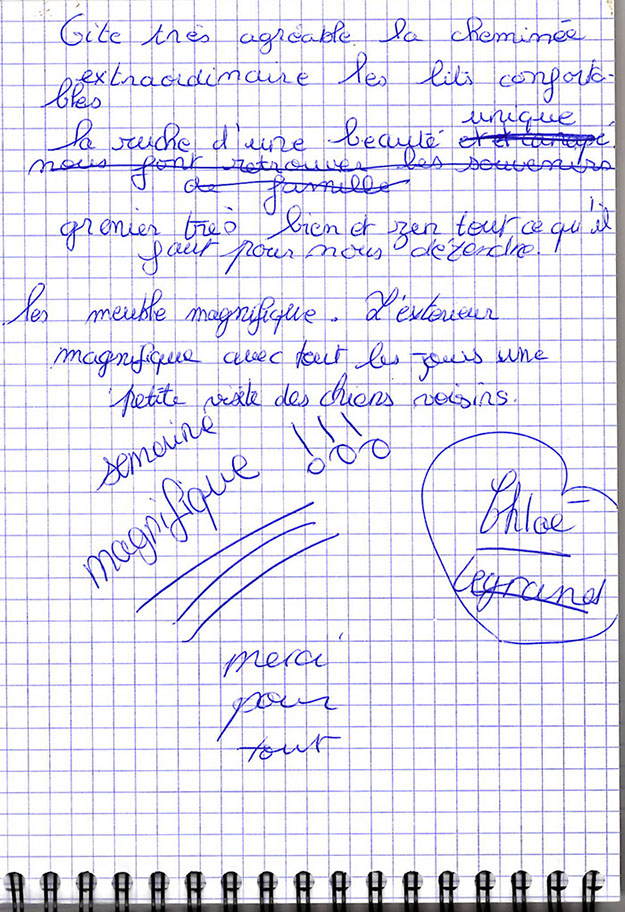 Gite très agréable la cheminée
extraordinaire les lits conforta-
bles
unique
la ruche d'une beauté et et canapé.
nous font retrouver les souvenirs
de famille
grenier très bien et zen tout ce qu'il
faut pour nous détendre.
les meuble magnifique. L'exterieur
magnifique avec tout les jours une
petite visite des chiens voisins.
semaine
magnifique !!!
Chloé
Legrand
merci
pour
tout